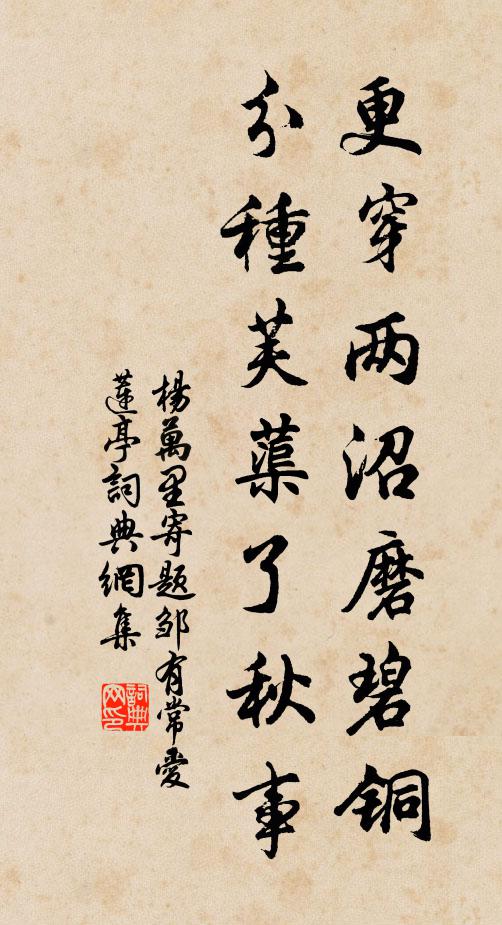 更穿两沼磨碧铜
分種芙蕖了秋事
楊萬里寄题邹有常愛
蓮亭詞典網集
詞典网印